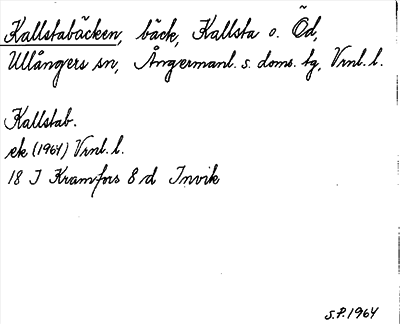 Kallstabäcken, bäck, Kallsta o. Öd,
Ullångers sn, Ångermanl. s. doms. tg, Vrnl. l.
Kallstab.
ek (1964) Vrnl. l.
18 I Kramfors 8 d Invik
S.P. 1964